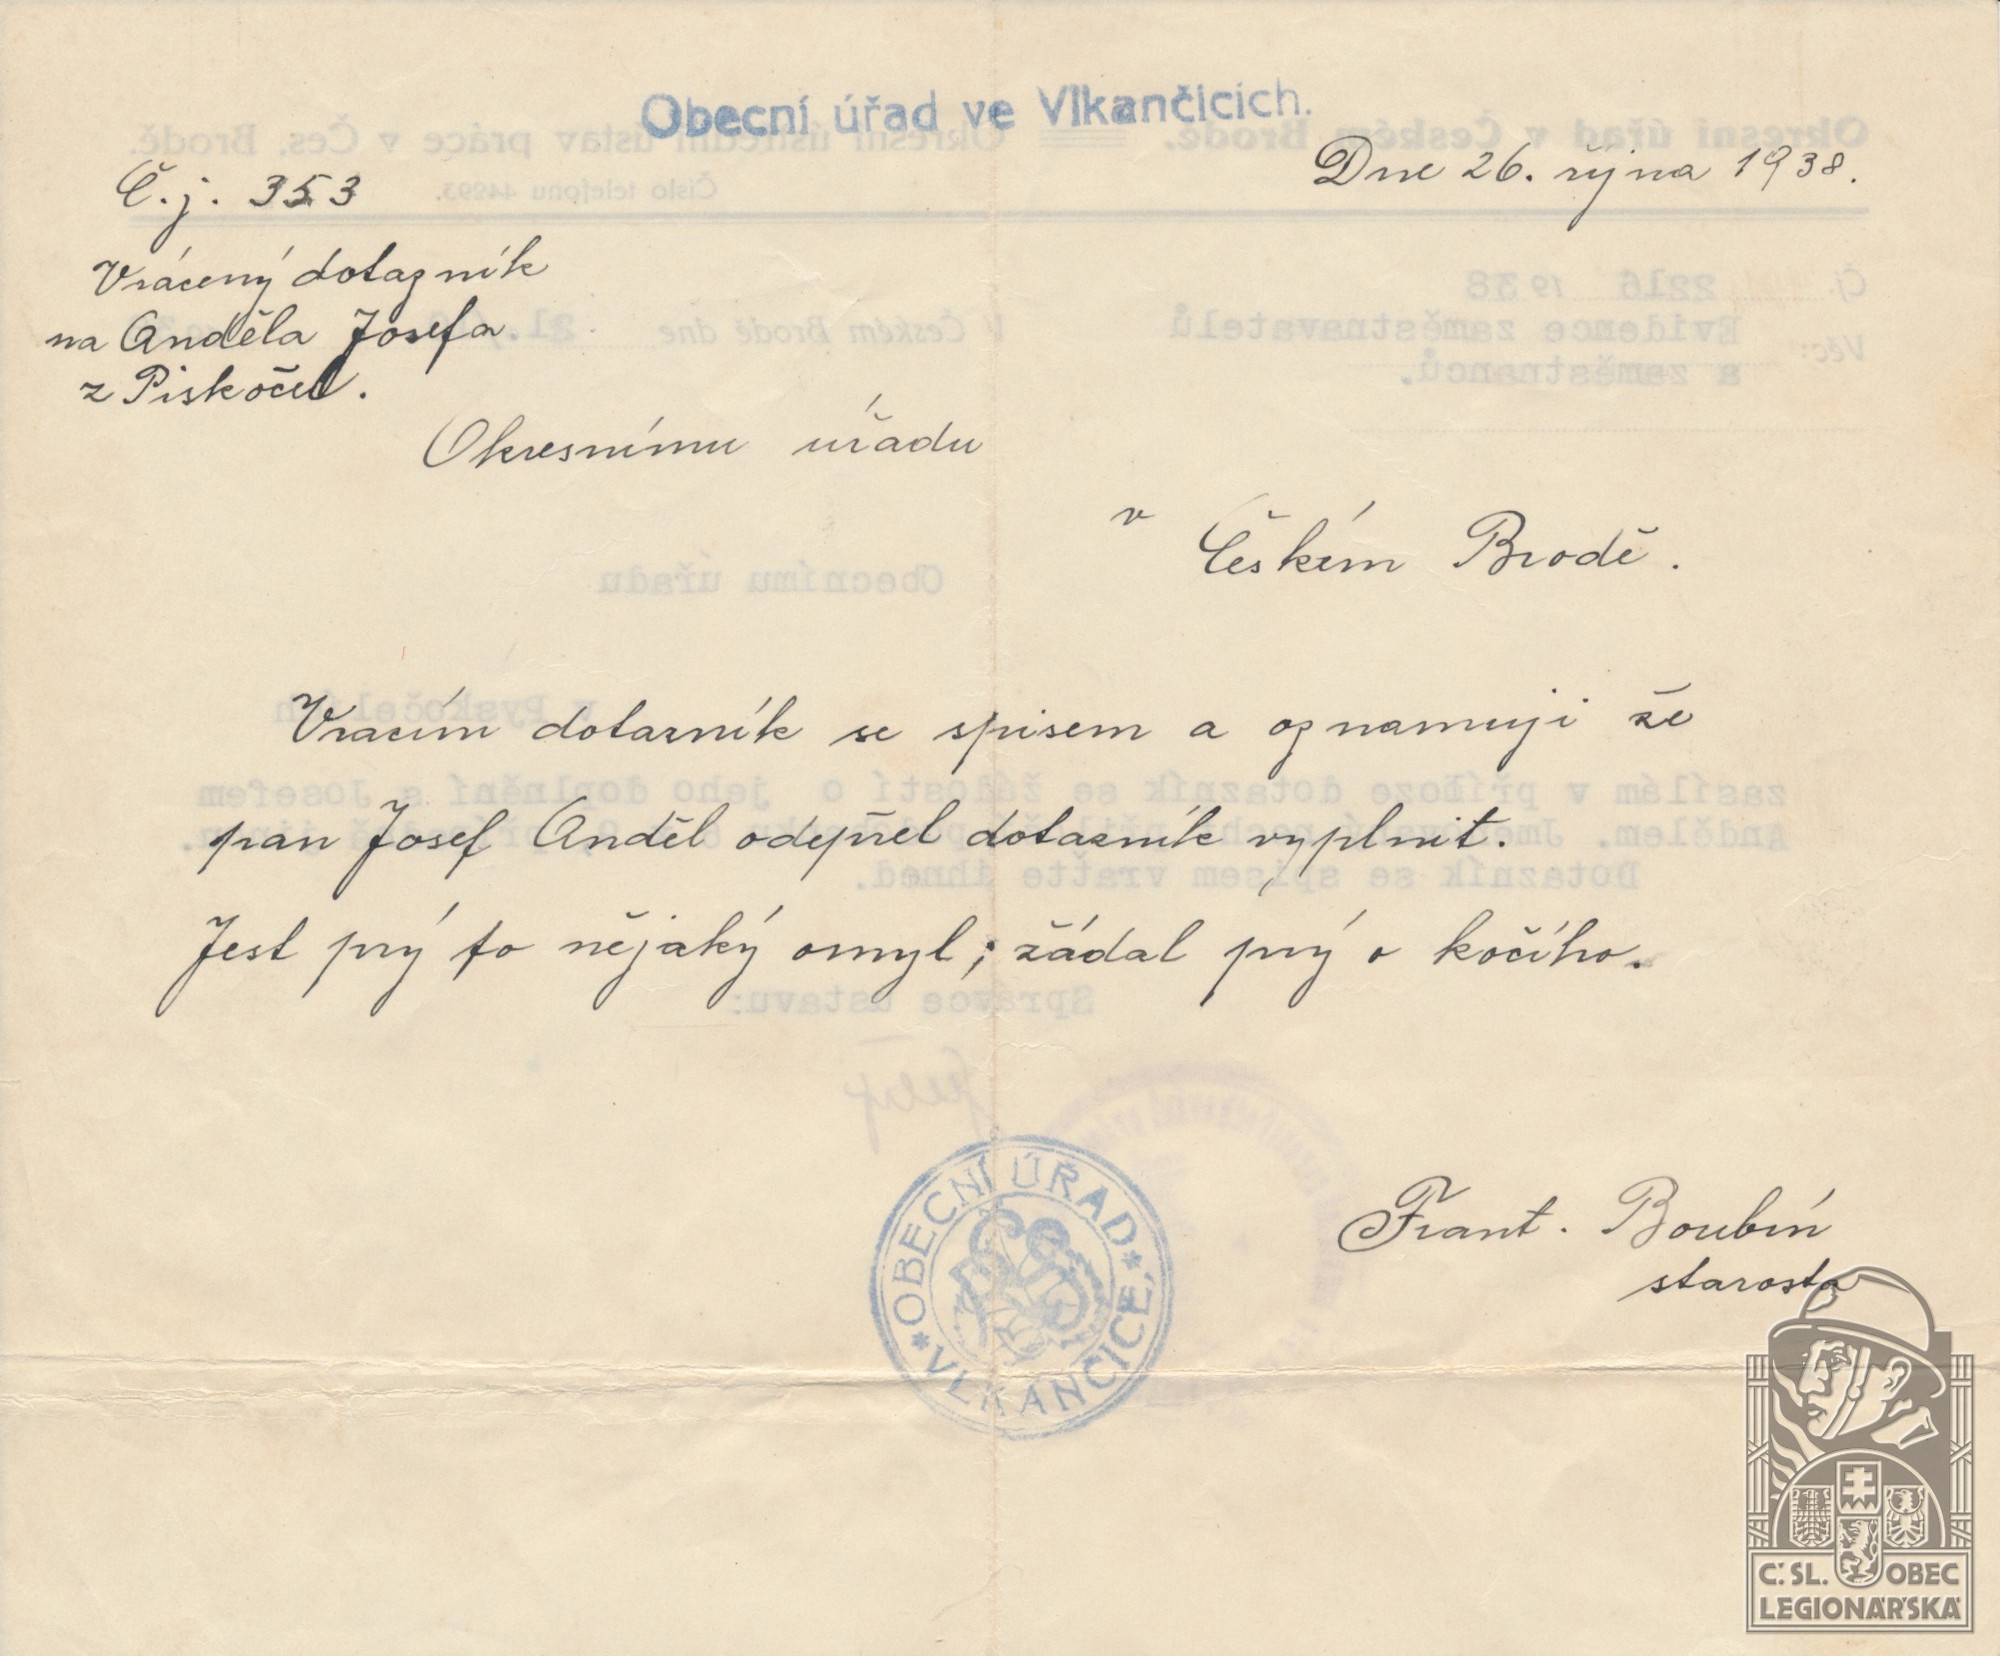 Obecní úřad ve Vlkančicích.
Č.j. 353
Dne 26. října 1938.
Vrácený dotazník
na Anděla Josefa
z Piskočel.
Okresnímu úřadu
v
Českém Brodě.
Vracím dotazník se spisem a oznamuji že
pan Josef Anděl odepřel dotazník vyplnit.
Jest prý to nějaký omyl; žádal prý o kočího.
OBECNÍ ÚŘAD
VLKANČICE
Frant. Boubín
starosta
Č.SL. OBEC
LEGIONÁŘSKÁ
Okresní úřad v Českém Brodě.
Okresní ústřední ústav práce v Čes. Brodě.
Číslo telefonu 44293.
Čj. 2216 1938
V Českém Brodě dne 21.
Věc: Evidence zaměstnavatelů
a zaměstnanců.
Obecnímu úřadu
v Pyskočelích
zasílám v příloze dotazník se žádostí o jeho doplnění s Josefem
Andělem.
Dotazník se spisem vraťte ihned.
Správce ústavu: